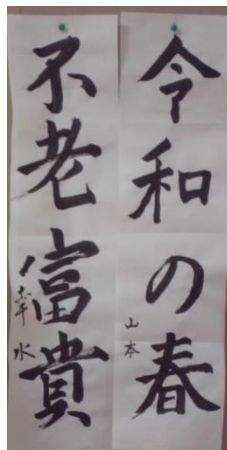 令和の春
山本
不老富貴
幸水